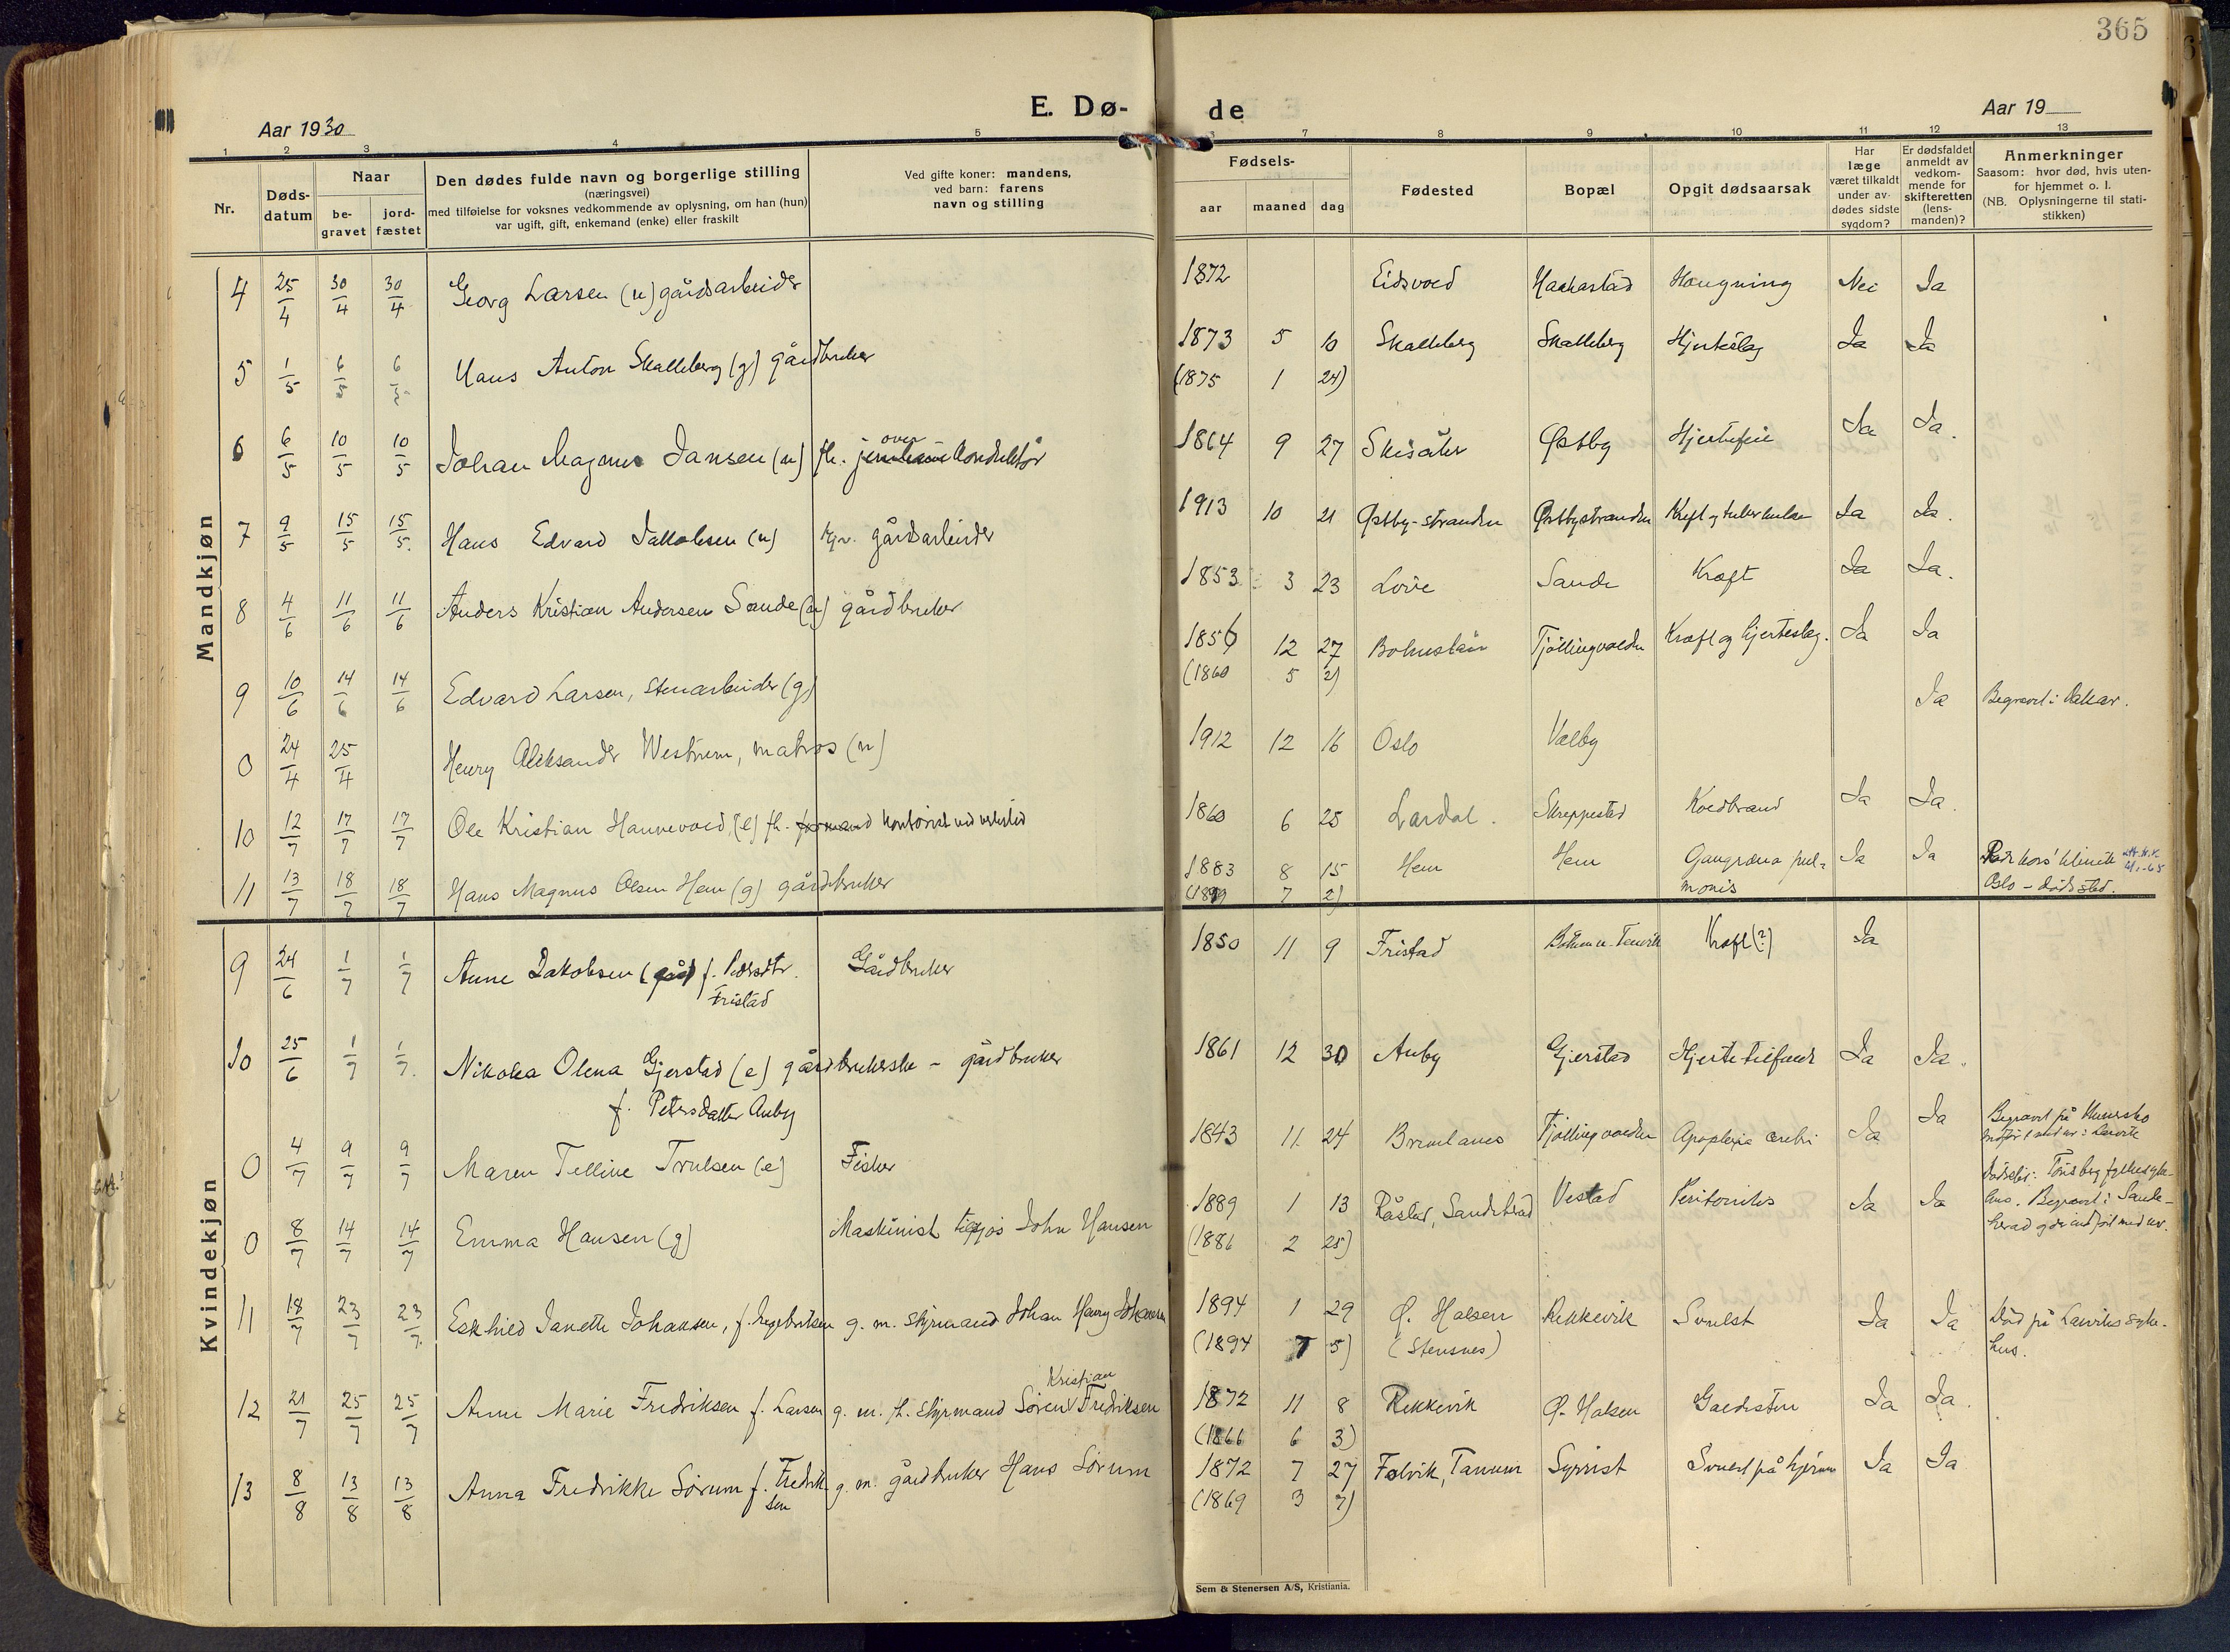 365
E. Dø-
de
Aar 1930
Aar 19
1 2 3 4 5 6 7 8 9 10 11 12 13
Nr.
Døds-
datum
Naar
be-
gravet
jord-
fæstet
Den dødes fulde navn og borgerlige stilling
(næringsvei)
med tilføielse for voksnes vedkommende av oplysning, om han (hun)
var ugift, gift, enkemand (enke) eller fraskilt
Ved gifte koner: mandens,
ved barn: farens
navn og stilling
Fødsels-
aar maaned dag
Fødested
Bopæl
Opgit dødsaarsak
Har
læge
været tilkaldt
under av-
dødes sidste
sygdom?
Er dødsfaldet
anmeldt av
vedkom-
mende for
skifteretten
(lens-
manden)?
Anmerkninger
Saasom: hvor død, hvis uten-
for hjemmet o. l.
(NB. Oplysningerne til stati-
stikken)
Mandkjøn
4 25/4 30/4 30/4 Georg Larsen (u) gårdsarbeider 1872 Eidsvold Haakastad Hængning Nei Ja
5 1/5 6/5 6/5 Hans Anton Skalleberg (g) gårdbruker 1873 5 10 Skalleberg Skalleberg Hjerteslag Ja Ja
(1875 1 24)
6 6/5 10/5 10/5 Johan Magnus Jansen (u) fh. over konduktør 1864 9 27 Skisåker Østby Hjertefeil Ja Ja.
7 9/5 15/5 15/5 Hans Edvard Jakobsen (u) gårdsarbeider 1913 10 21 Østby-stranden Østbystranden Kreft og tuberkulose Ja Ja.
8 4/6 11/6 11/6 Anders Kristian Andersen Sande (u) gårdbruker 1853 3 23 Løve Sande Kræft Ja Ja.
9 10/6 14/6 14/6 Edvard Larsen, stenarbeider (g) 1856 12 27 Bohuslän Tjöllingvolden Kræft og hjerteslag. Ja Ja
(1860 5 2)
0 24/4 25/4 Henry Aleksander Westrum, matros (u) 1912 12 16 Oslo Valby Ja Begravet i
10 12/7 17/7 17/7 Ole Kristian Hannevold, (e) fh. formand kontorist ved verksted 1860 6 25 Lardal. Skreppestad Koldbrand Ja Ja.
11 13/7 18/7 18/7 Hans Magnus Olsen Hem (g) gårdbruker 1883 8 15 Hem Hem Gangræna pul-
monis Ja Ja Røde kors' klinikk
Oslo - dødssted.
(1899 7 2)
Kvindekjøn
9 24/6 1/7 1/7 Anne Jakobsen f. Pedersdtr.
Fristad
Gårdbruker 1850 11 9 Fristad Kræft (?) Ja
10 25/6 1/7 1/7 Nikolea Olena Gjerstad (e) gårdbrukerske - gårdbruker 1861 12 30 Auby Gjerstad Hjertetilfælde Ja Ja.
f. Petersdatter Auby
0 4/7 9/7 9/7 Maren Telline Trulsen (e) Fisker 1843 11 24 Bremtanes Tjøllingvolden Apoplexia cerebri Ja Ja Begravet på
0 8/7 14/7 14/7 Emma Hansen (g) Maskinist John Hansen 1889 1 13 Råstad, Sandeherad Vestad Peritonitis Ja Ja Dødssted: Tønsberg fylkessyke-
hus. Begravet i Sande-
(1886 2 25)
11 18/7 23/7 23/7 Eskhild Janette Johansen, f. Ingebretsen g. m. styrmand Johan Henry Johansen 1894 1 29 Ø. Halsen Rekkevik Svulst Ja Ja Død på Larviks syke-
hus.
(1894 7 5) (Stensnes)
12 21/7 25/7 25/7 Anne Marie Fredriksen f. Larsen g. m. fh. styrmand Søren Kristian Fredriksen 1872 11 8 Rekkevik Ø. Halsen Galdesten Ja Ja.
(1866 6 3)
13 8/8 13/8 13/8 Anna Fredrikke Sörum f. Fredrik-
sen
g. m. gårdbruker Hans Sörum 1872 7 27 Falvik, Tanum Syrrist Svulst på hjernen Ja Ja
(1869 3 7)
Sem & Stenersen A/S, Kristiania.